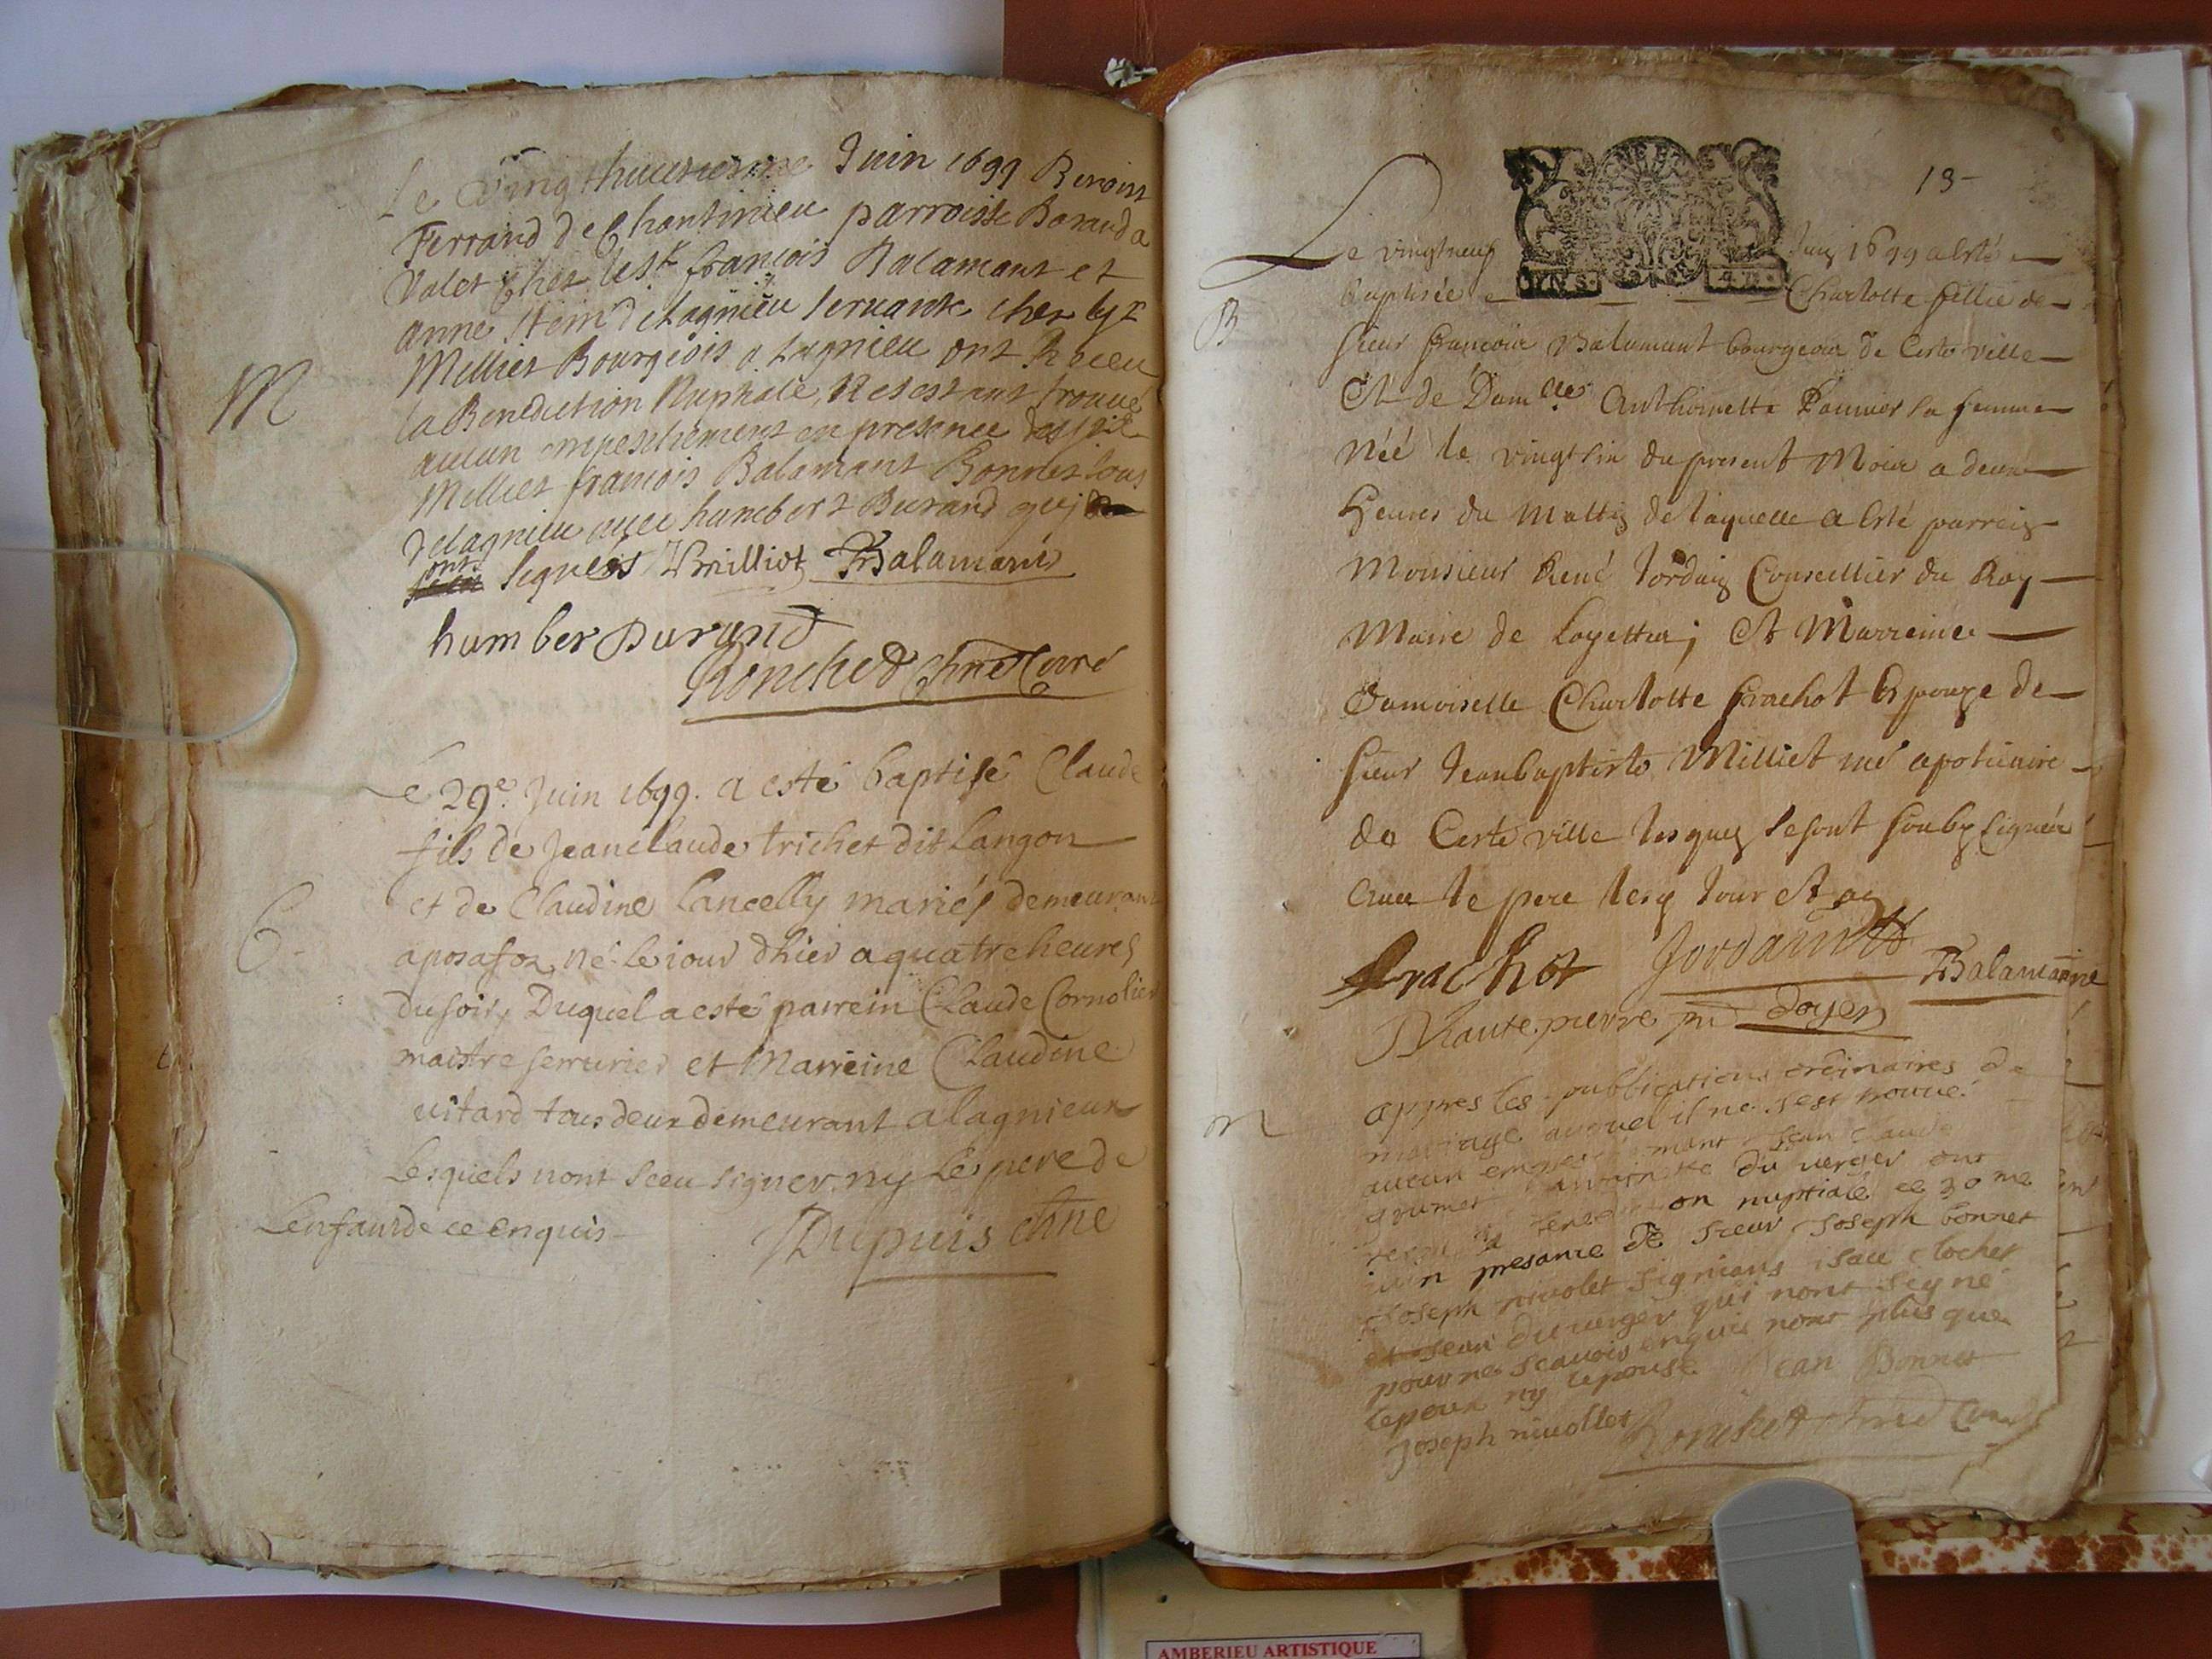 Le Vingthuictiesme Juin 1699 Benoist
Ferrand de Chantinieu parroisse Boranda
Valet Chez le Sr francois Balamant et
anne de Lagnieu servante chez le Sr
Milliet Bourgeois a Lagnieu ont Receu
la Benediction Nuptiale, N'etestant trouué
aucun empeschement en presence des
Milliet francois Balamant Bonnet tous
de Lagnieu avec humbert Durand qui
ont signéés Milliot Balamant
humber Durand
Ronchet Chne Curé
M
Le 29e. Juin 1699. a esté baptisé Claude
fils de Jeanclaude trichet dit Langon
et de Claudine Lancelly mariés demeurant
aposafon, né le iour dhier a quatre heures
du soir, Duquel a esté parrein Claude Cornolier
maistre serrurier et Marreine Claudine
uitard tous deux demeurant a lagnieux
Lesquels nont sceu signer ny Le pere de
Lenfant de ce enquis
Dupuis chne
B
13-
Le vingtneuf Juin 1699 a esté
baptisée Charlotte fillie de
sieur francois Balamant bourgeois de Ceste ville
Et de Damlle Anthoinette Paumier sa femme
Néé le vingt six du present Mois a deux
heures du Mattin de laquelle a esté parrein
Monsieur René Jordain Conseillier du Roy
Maire de Loyettes; Et Marreine
Damoiselle Charlotte frachot Espouze de
sieur Jeanbaptiste Milliet me apoticaire
de Ceste ville lesquels se sont soubz signéés
Avec le pere lesd Jour Et an
frachot Jordain Balamant
Dhautepierre doyen
M
appres les publications ordinaires de
mariage auquel il ne sest trouué
aucun Jean Claude
grumet du verger ont
nuptiale ce 30me
juin presance de sieur Joseph bonnet
Joseph nivolet signians isac clocher
et Jean duverger qui nont signé
pour ne scauoir enquis nont plus que
lepoux ny lepouse Jean Bonnet
Joseph niuollet Ronchet Chne Curé
AMBERIEU ARTISTIQUE